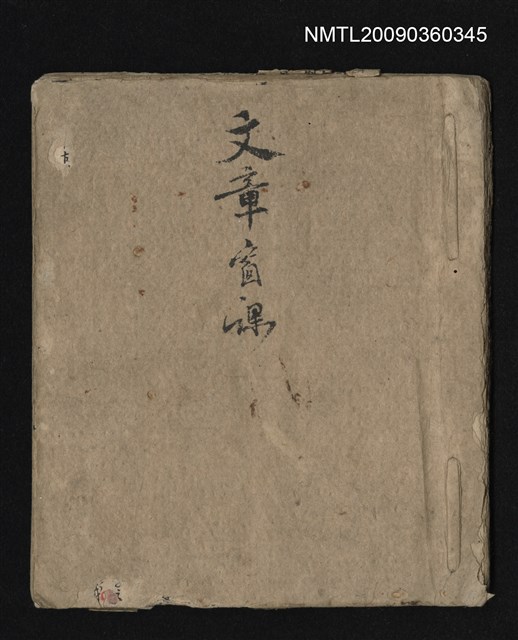 NMTL20090360345
文章窗課